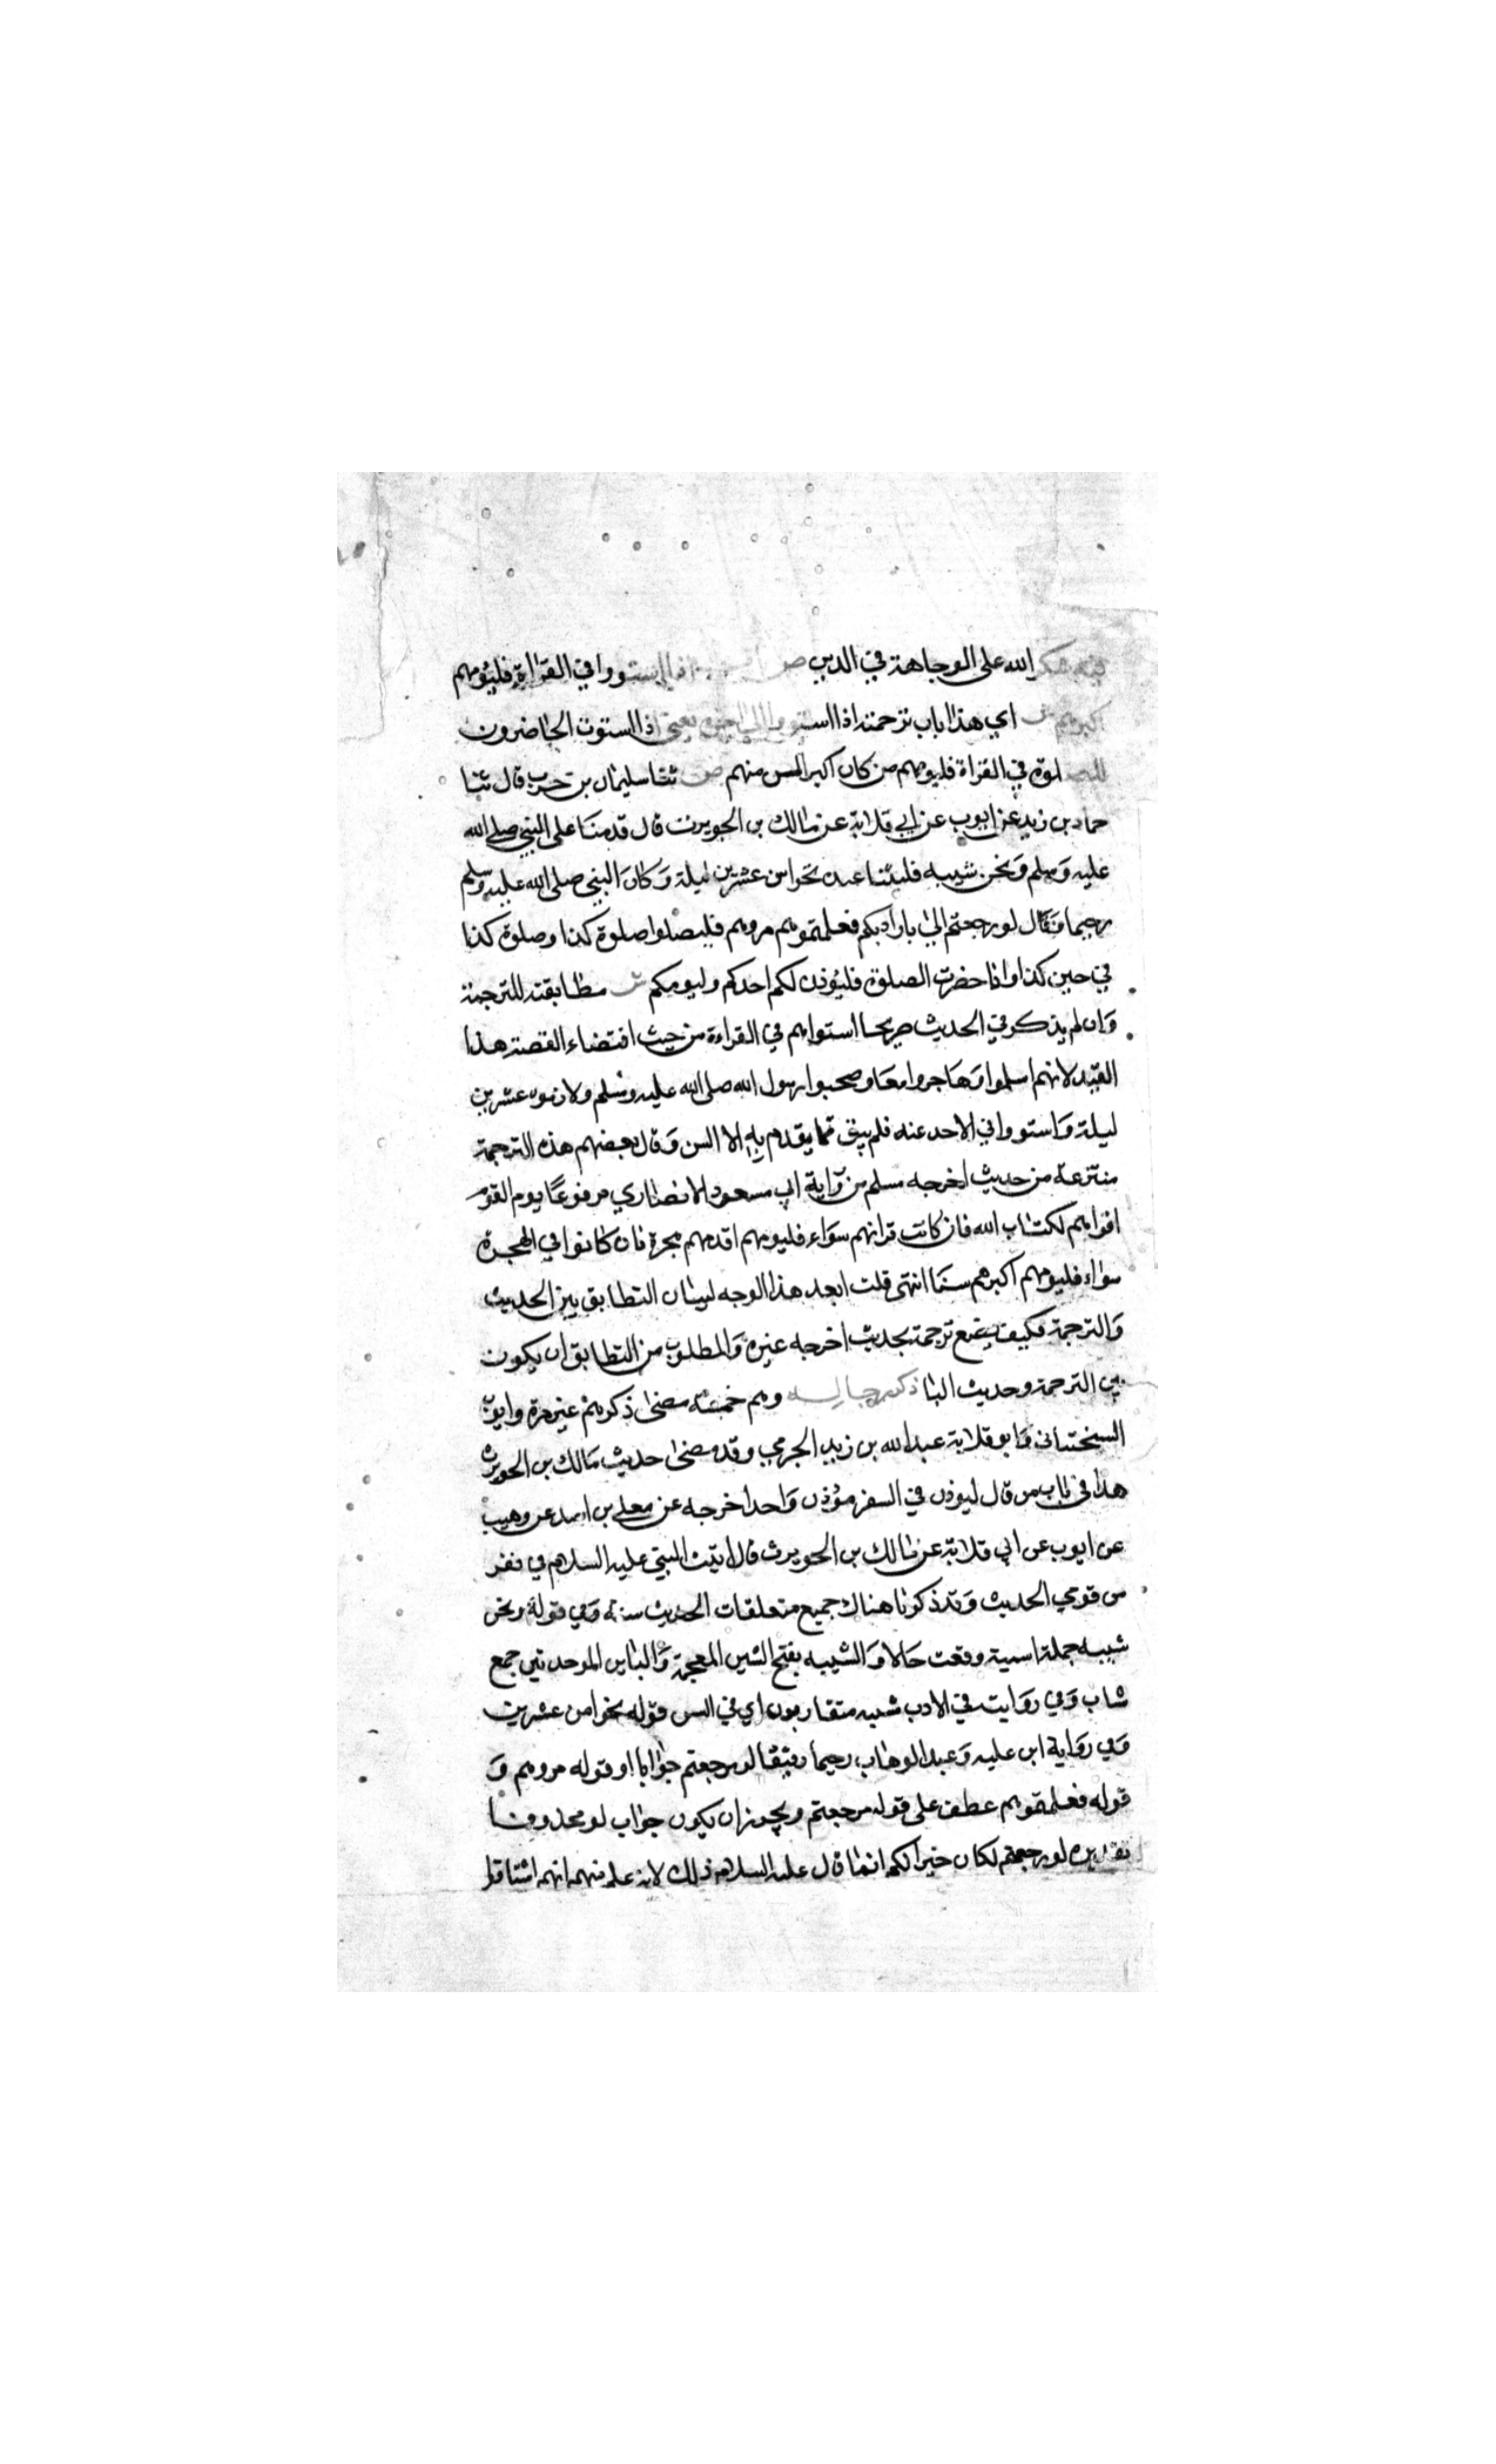 فيه شكر الله على الوجاهة في الدين ص اذا استووا في القراة فليؤمهم
اكبرهم ش اي هذا باب ترجمته اذا استووا الى اخره يعني اذا استوت الحاضرون
للصلوة في القراة فليومهم من كان اكبر السن منهم ص ثنا سليمان بن حرب قال ثنا
حماد بن زيد عن ايوب عن ابي قلابة عن مالك بن الحويرث قال قدمنا على النبي صلى الله
عليه وسلم ونحن شببه فلبثنا عنده نحوا من عشرين ليلة وكان النبي صلى الله عليه وسلم
رحيما فقال لو رجعتم الى بلادكم فعلمتموهم مروهم فليصلوا صلوة كذا وصلوة كذا
في حين كذا واذا حضرت الصلوة فليؤذن لكم احدكم وليومكم ش مطابقته للترجمة
وان لم يذكر في الحديث صريحا استواهم في القراءة من حيث اقتضاء القصة هذا
القيد لانهم اسلموا وهاجروا معا وصحبوا رسول الله صلى الله عليه وسلم ولازموه عشرين
ليلة واستووا في الاخذ عنه فلم يبق مما يقدم به الا السن وقال بعضهم هذه الترجمة
منتزعة من حديث اخرجه مسلم من رواية ابي مسعود الانصاري مرفوعا يوم القوم
اقراهم لكتاب الله فان كانت قراتهم سواء فليومهم اقدمهم هجرة فان كانوا في الهجرة
سواء فليومهم اكبرهم سنا انتهى قلت ابعد هذا الوجه لبيان التطابق بين الحديث
والترجمة فكيف يضع ترجمة بحديث اخرجه غيره والمطلوب من التطابق ان يكون
بين الترجمة وحديث الباب ذكر رجاله وهم خمسة مضى ذكرهم غير مرة وايوب
السختياني وابو قلابة عبد الله بن زيد الجرمي وقد مضى حديث مالك بن الحويرث
هذا في باب من قال ليوذن في السفر مؤذن واحد اخرجه عن معلى بن اسد عن وهيب
عن ايوب عن ابي قلابة عن مالك بن الحويرث قال اتيت النبي عليه السلام في نفر
من قومي الحديث وقد ذكرنا هناك جميع متعلقات الحديث وفي قوله ونحن
شببه جملة اسمية وقعت حالا والشببه بفتح الشين المعجمة والباين الموحدتين جمع
شاب وفي روايت في الادب شببه متقاربون اي في السن قوله نحوا من عشرين
وفي رواية ابن عليه وعبد الوهاب رحيما رفيقا لو رجعتم جوابا او قوله مروهم و
قوله فعلمتموهم عطف على قوله رجعتم ويجوز ان يكون جواب لو محذوفا
تقديره لو رجعتم لكان خيرا لكم انما قال عليه السلام ذلك لانه علم منهم انهم اشتاقوا